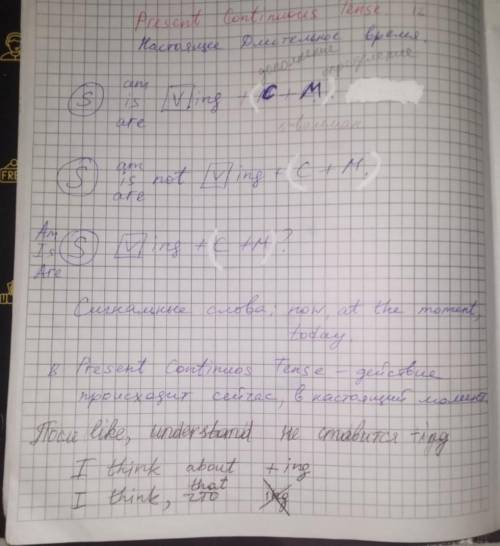 Present Continuous Tense
Настоящее Длительное время.
дополнение определение
S am is are [V] ing + (C + M).
S am is are not [V] ing + (C + M).
Am Is Are S [V] ing + (C + M)?
Сигнальные слова: now, at the moment,
today.
В Present Continuos Tense - действие
происходит сейчас, в настоящий момент.
После like, understand не ставится -ing
I think about + ing
I think, that что ing